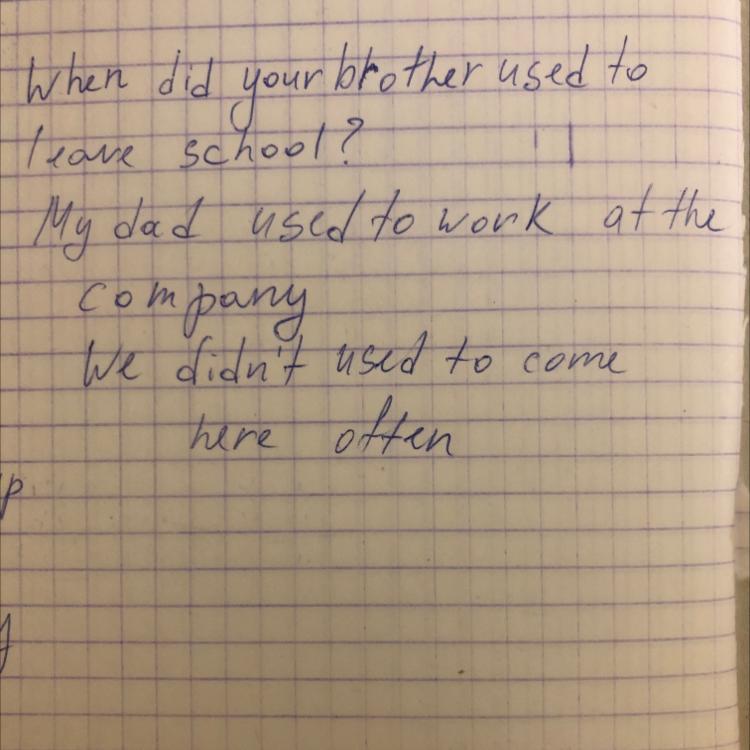 When did your brother used to
leave school?
My dad used to work at the
company
We didn't used to come
here often